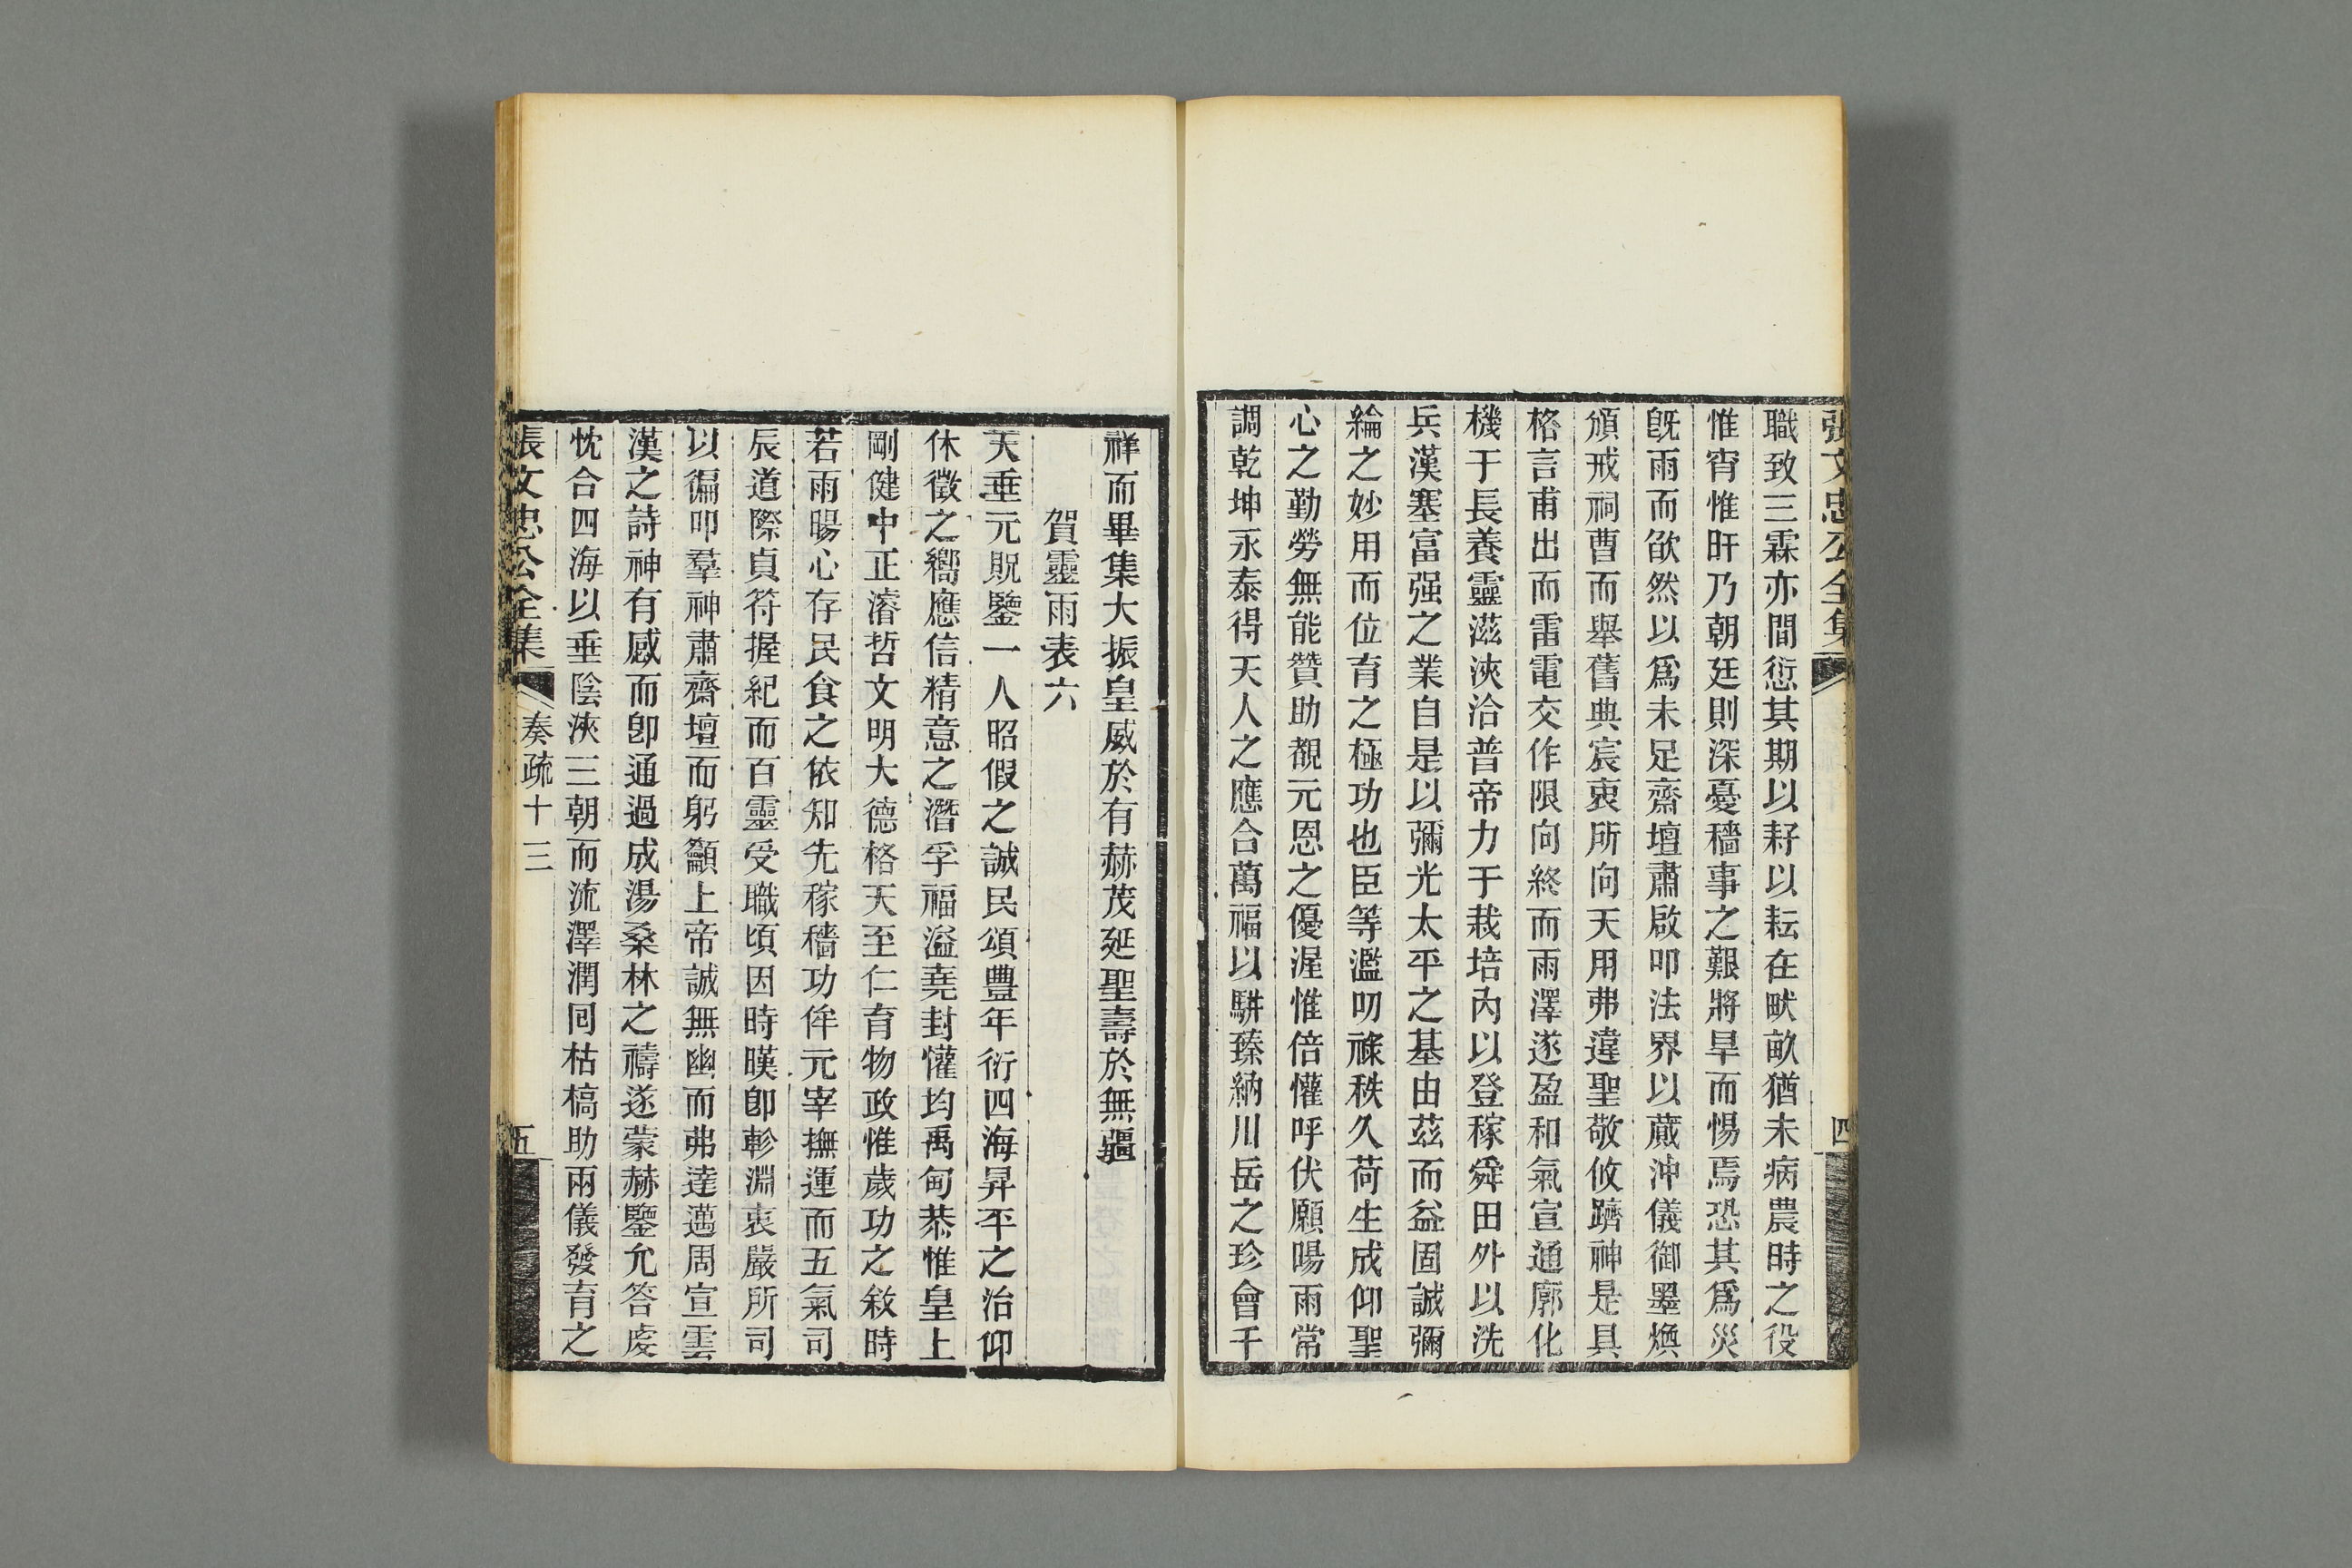 張文忠公全集
四
職致三霖亦間愆其期以耔以耘在畎畝猶未病農時之役
惟宵惟旰乃朝廷則深憂穡事之艱將旱而惕焉恐其爲災
旣雨而欿然以爲未足齋壇肅啟叩法界以蕆沖儀御墨煥
頒戒祠曹而舉舊典宸衷所向天用弗違聖敬攸躋神是具
格言甫出而雷電交作限向終而雨澤遂盈和氣宣通廓化
機于長養靈滋浹洽普帝力于栽培內以登稼舜田外以洗
兵漢塞富强之業自是以彌光太平之基由茲而益固誠彌
綸之妙用而位育之極功也臣等濫叨祿秩久荷生成仰聖
心之勤勞無能贊助覩元恩之優渥惟倍懽呼伏願暘雨常
調乾坤永泰得天人之應合萬福以駢臻納川岳之珍會千
祥而畢集大振皇威於有赫茂延聖壽於無疆
賀靈雨表六
天垂元貺鑒一人昭假之誠民頌豐年衍四海昇平之治仰
休徵之嚮應信精意之潛孚福溢堯封懽均禹甸恭惟皇上
剛健中正濬哲文明大德格天至仁育物政惟歲功之敘時
若雨暘心存民食之依知先稼穡功侔元宰撫運而五氣司
辰道際貞符握紀而百靈受職頃因時暵卽軫淵衷嚴所司
以徧叩羣神肅齋壇而躬籲上帝誠無幽而弗達邁周宣雲
漢之詩神有感而卽通過成湯桑林之禱遂蒙赫鑒允答虔
忱合四海以垂陰浹三朝而流澤潤囘枯槁助兩儀發育之
張文忠公全集
奏疏十三
五